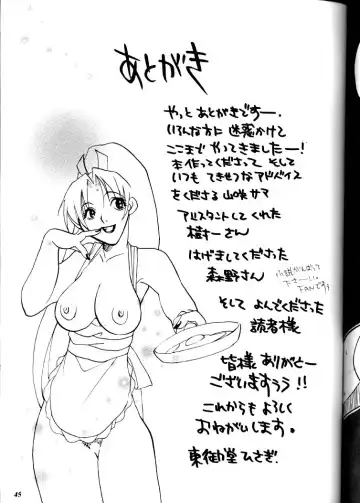 あとがき
やっと あとがきですー.
いろんな方に 迷惑かけて
ここまで やってきましたー!
本作ってくださって そして
いつも てきせつなアドバイス
をくださる 山咲サマ
アシスタントしてくれた
すーさん
はげましてくださった
森野さん
小説がんばって
下さーい。
FANですぅ
そして よんでくださった
読者様
皆様 ありがとー
ございますぅぅ!!
これからも よろしく
おねがいします.
東御堂 ひさぎ
45